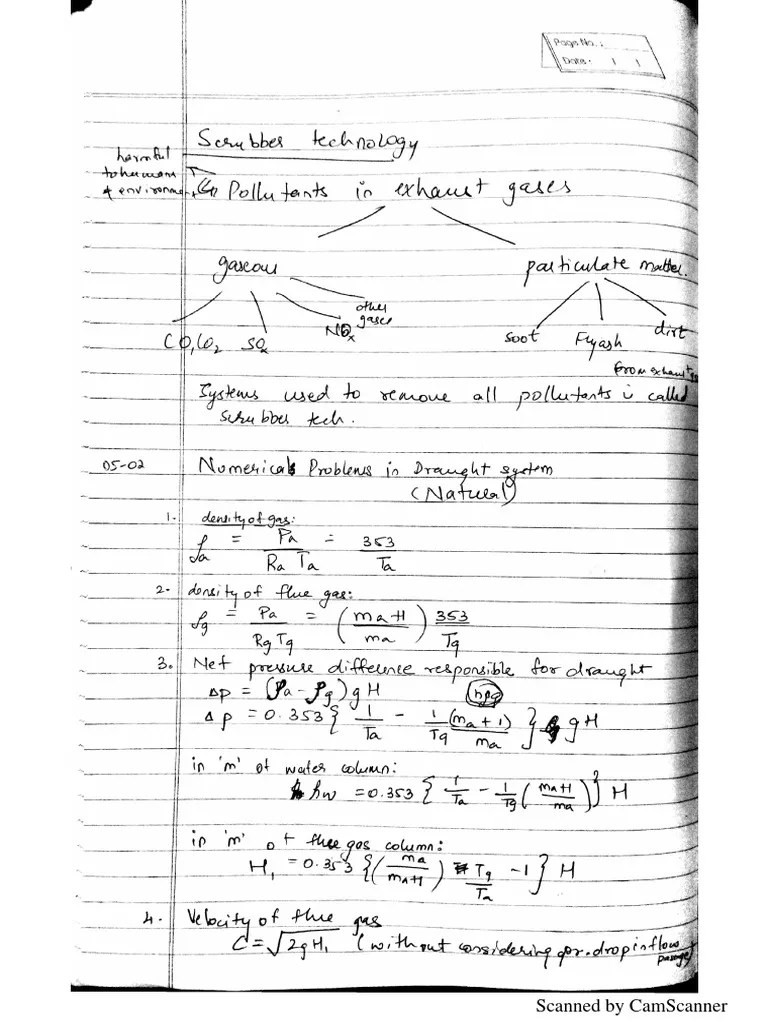 Page No. :
Date : / /
Scrubber technology
harmful
to humans
& environment
Pollutants in exhaust gases
gaseous particulate matter.
CO, CO2 SOx NOx other gases
soot Flyash dirt
from exhaust
Systems used to remove all pollutants is called
scrubber tech.
05-02 Numericals Problems in Draught system
(Natural)
1. density of gas:
ρa = Pa / Ra Ta = 353 / Ta
2. density of flue gas:
ρg = Pa / Rg Tg = (ma+1 / ma) 353 / Tg
3. Net pressure difference responsible for draught
Δp = (ρa - ρg) g H
Δp = 0.353 { 1/Ta - 1/Tg (ma+1)/ma } gH
in 'm' of water column:
hw = 0.353 { 1/Ta - 1/Tg (ma+1 / ma) } H
in 'm' of flue gas column:
H1 = 0.353 { (ma / ma+1) Tg/Ta - 1 } H
4. Velocity of flue gas
C = √2gH1 (without considering pr. drop in flow
passage)
Scanned by CamScanner